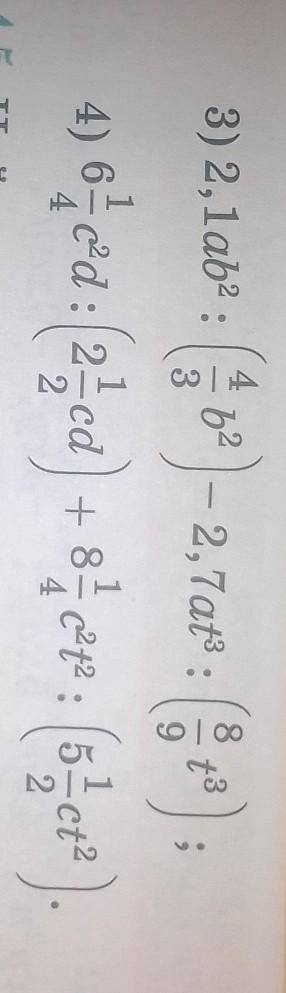 3) 2,1ab² : (4/3 b²) − 2,7at³ : (8/9 t³) ;
4) 6 1/4 c²d : (2 1/2 cd) + 8 1/4 c²t² : (5 1/2 ct²).